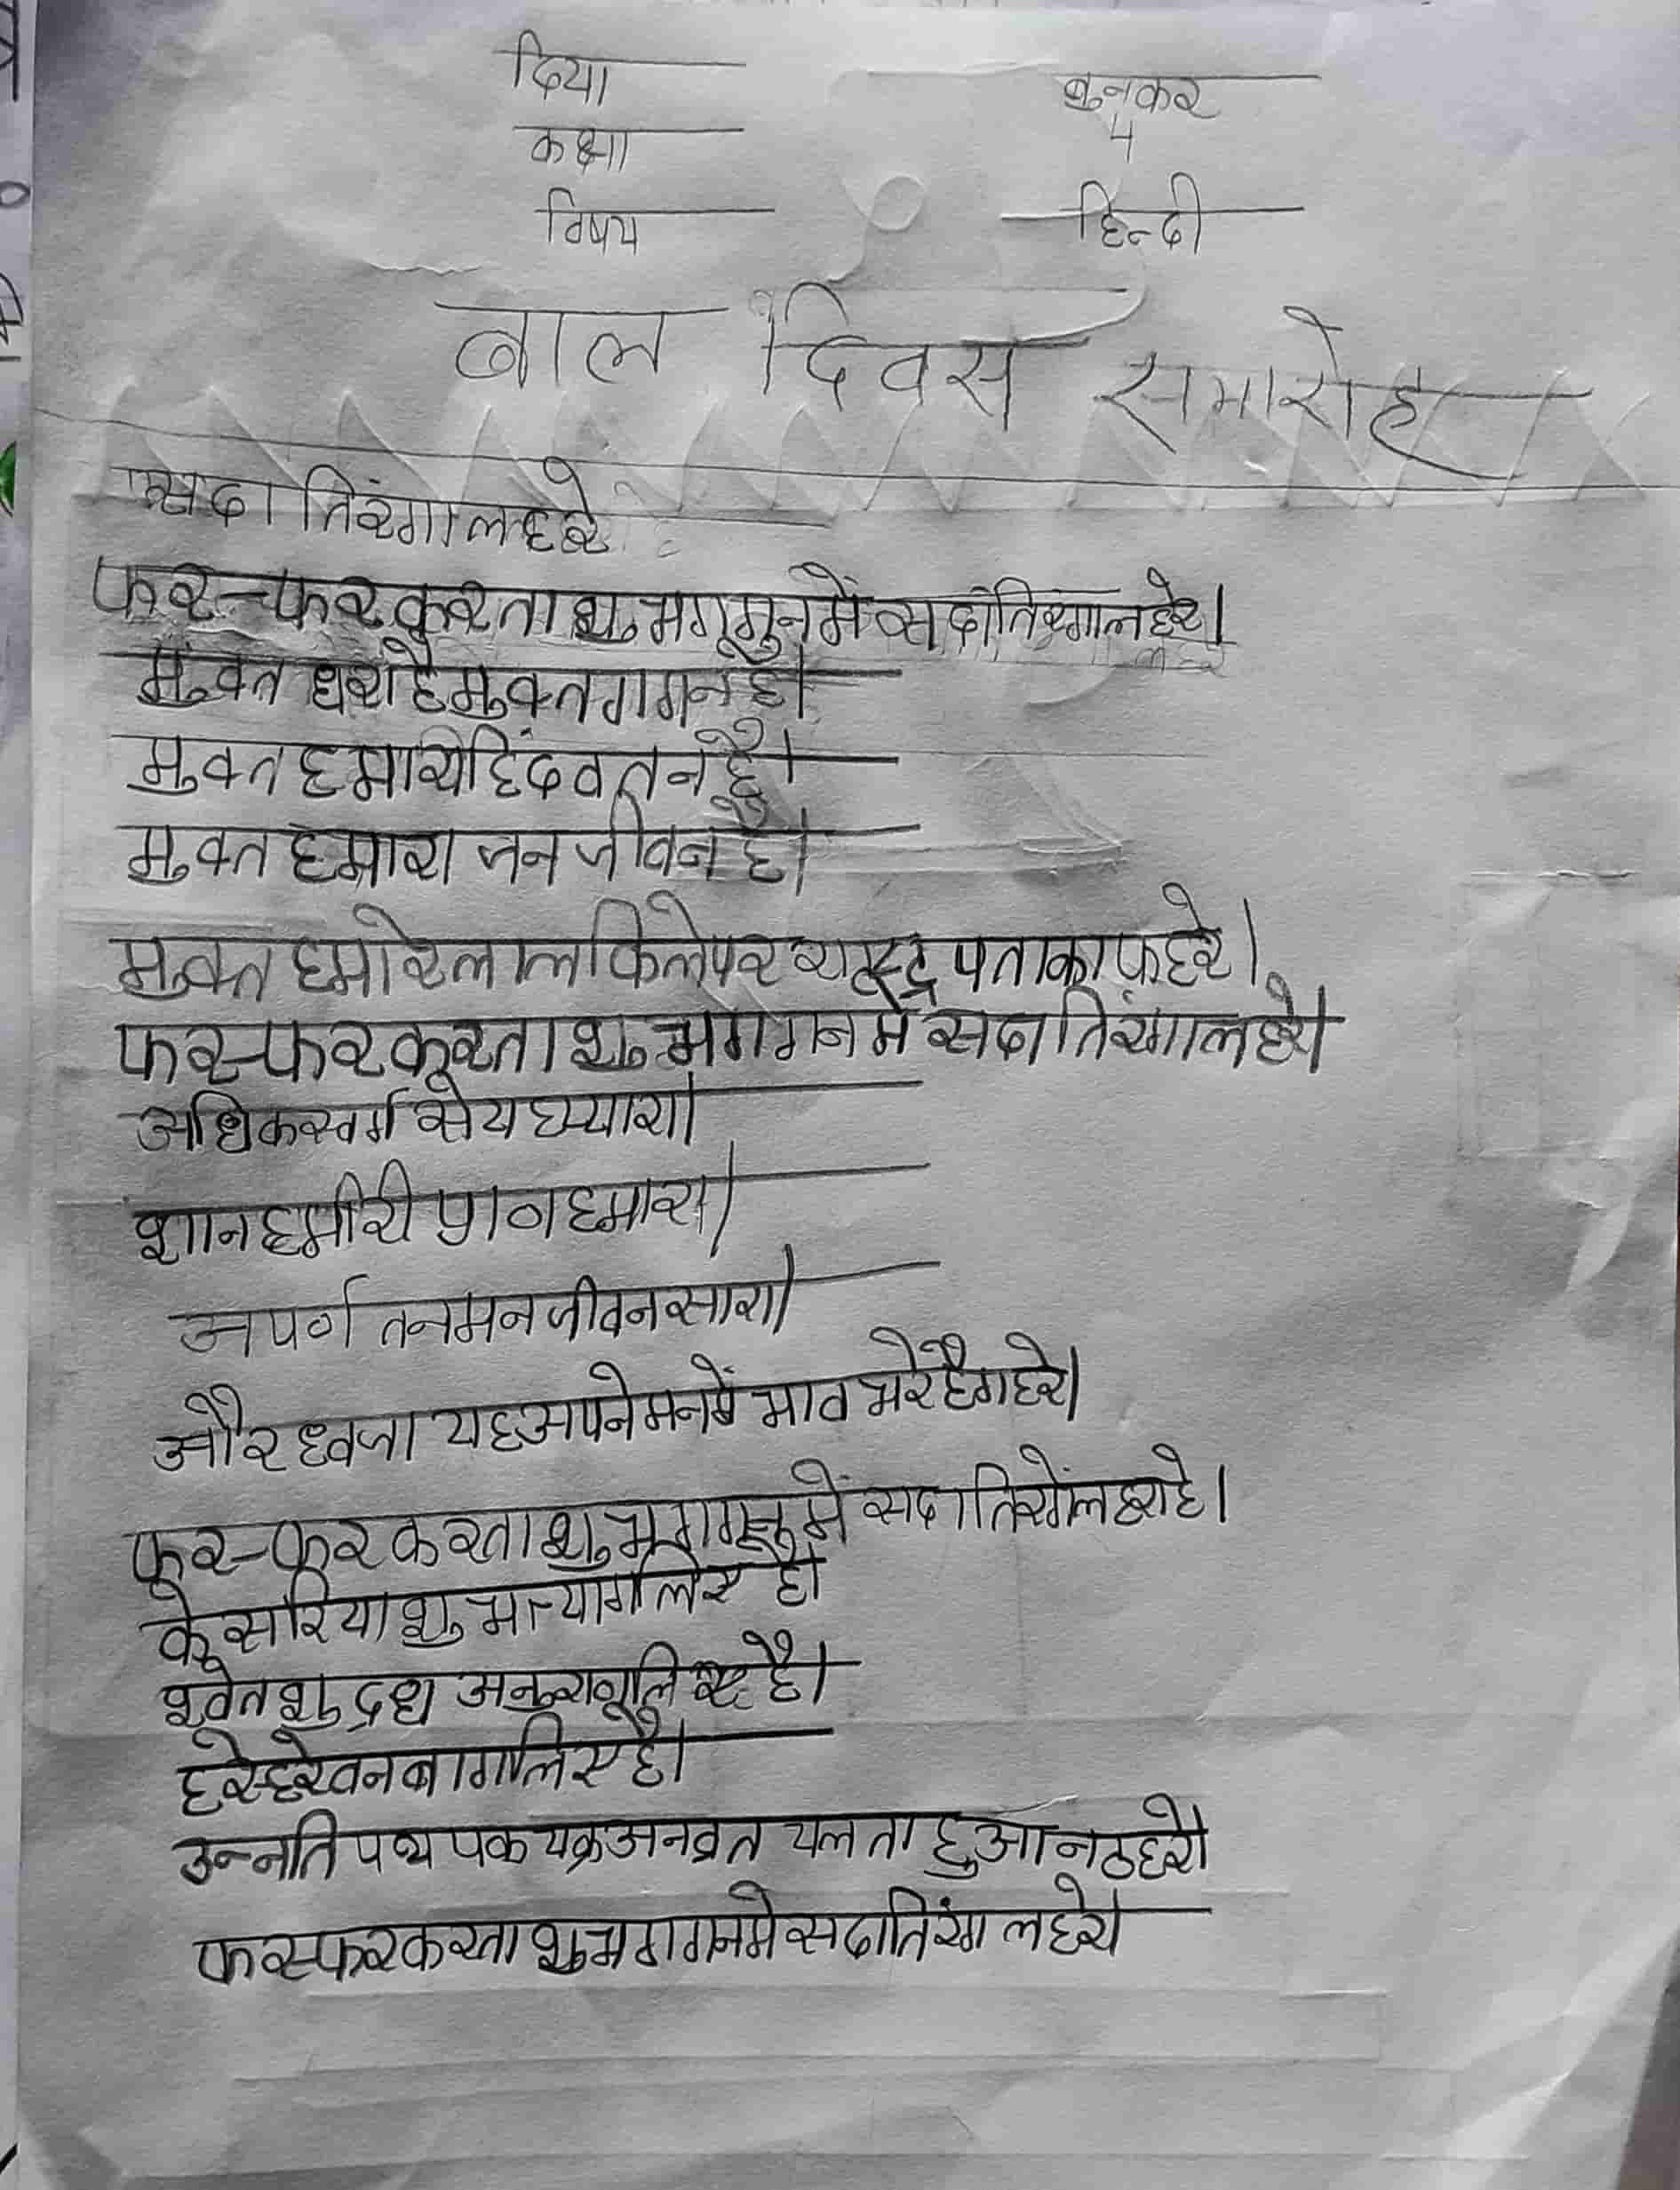 दिया बुनकर
कक्षा 4
विषय हिन्दी
बाल दिवस समारोह
सदा तिरंगा लहरे
फर-फर करता शुभ्र गगन में सदा तिरंगा लहरे।
मुक्त धरा है मुक्त गगन है।
मुक्त हमारा हिंद वतन है।
मुक्त हमारा जन जीवन है।
मुक्त हमारे लाल किले पर राष्ट्र पताका फहरे।
फर-फर करता शुभ गगन में सदा तिरंगा लहरे।
अधिक स्वर्ग से यह प्यारा।
शान हमारी प्राण हमारा।
अपर्ण तन मन जीवन सारा।
और ध्वजा यह अपने मन में भाव भरे है गहरे।
फर-फर करता शुभ गगन में सदा तिरंगा
केसरिया शुभ त्याग लिए है।
श्वेत अनुराग लिए है।
हरे-हरे वन बाग लिए है।
उन्नति पथ पक चक्र अनव्रत चलता हुआ न ठहरे।
फर-फर करता शुभ गगन मे सदा तिरंगा लहरे।